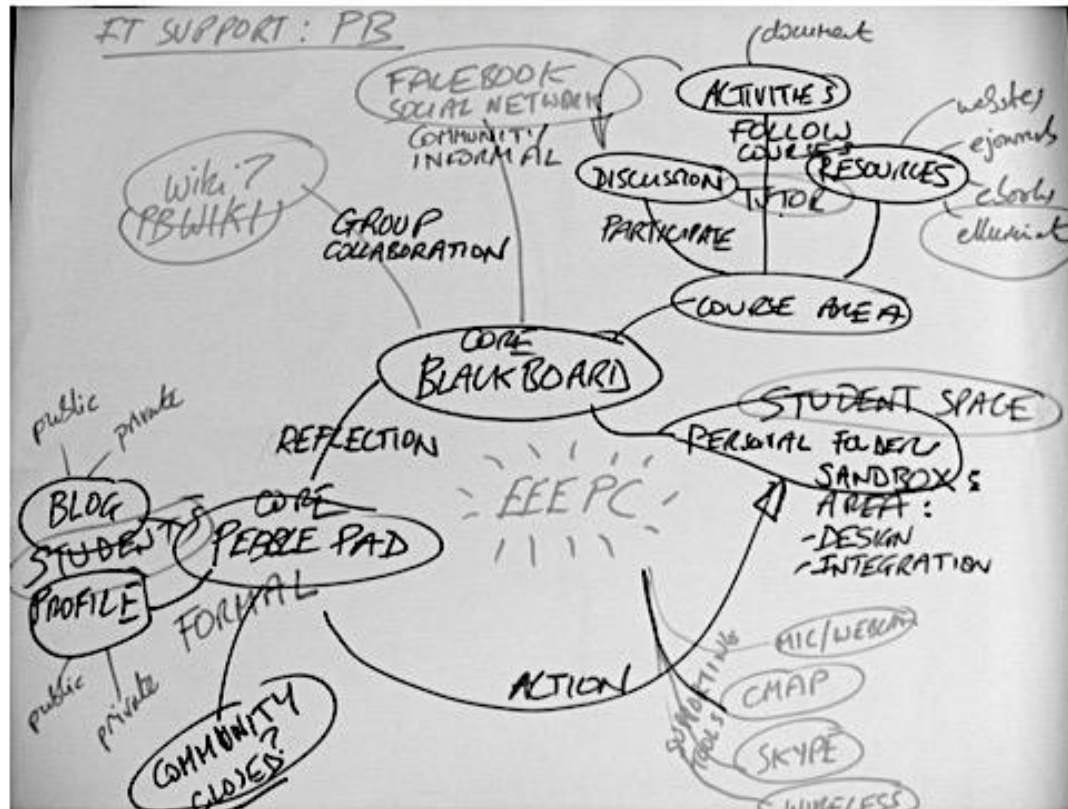 IT SUPPORT: PB
FALEBOOK
SOCIAL NETWORK
COMMUNITY
INFORMAL
document
ACTIVITIES
FOLLOW
COURSES
websites
ejournals
RESOURCES
ebooks
elluminat
DISCUSSION
TUTOR
PARTICIPATE
wiki?
PBWIKI
GROUP
COLLABORATION
COURSE AREA
CORE
BLACKBOARD
STUDENT SPACE
PERSONAL FOLDER
SANDBOX
AREA:
-DESIGN
-INTEGRATION
public
private
REFLECTION
EEEPC
BLOG
STUDENT'S
PROFILE
CORE
PEBBLE PAD
FORMAL
public
private
ACTION
COMMUNITY
CLOSED?
SUPPORTING
TOOLS
MIC/WEBCAM
CMAP
SKYPE
WIRELESS